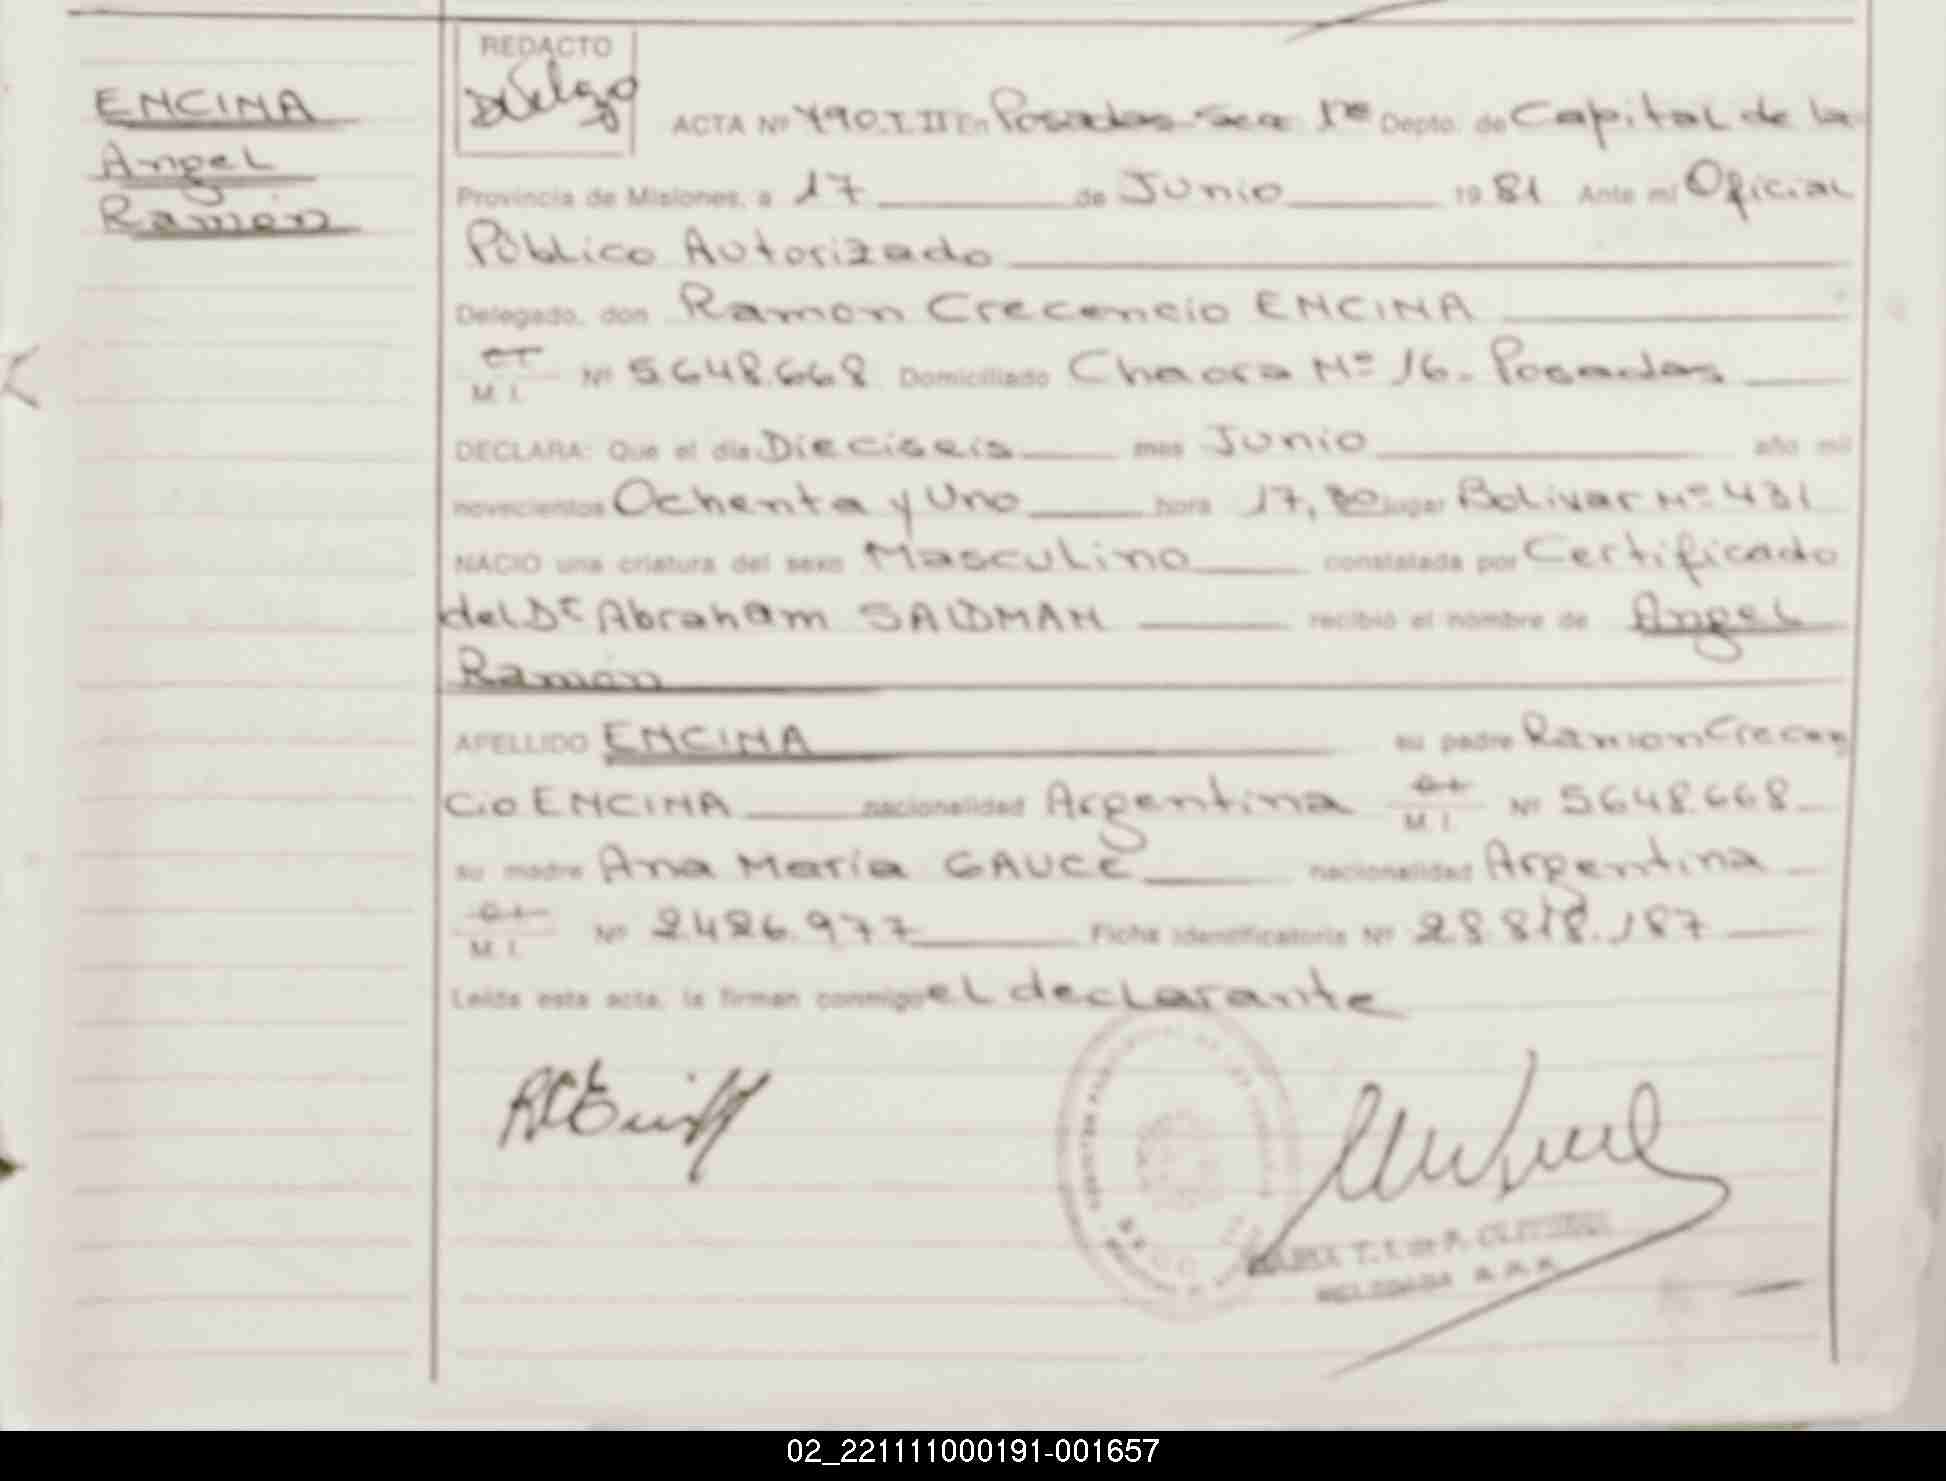 ENCINA
Angel
Ramón
REDACTO
Delgo
ACTA Nº 490.T.II En Posadas Sec 1ra Depto. de Capital de la
Provincia de Misiones, a 17 de Junio 1981 Ante mí Oficial
Público Autorizado
Delegado, don Ramon Crecencio ENCINA
CT M. I. Nº 5.648.668 Domiciliado Chacra Nº 16. Posadas
DECLARA: Que el día Dieciseis mes Junio año mil
novecientos Ochenta y Uno hora 17,30 lugar Bolivar Nº 431
NACIO una criatura del sexo Masculino constatada por Certificado
del Dr Abraham SALDMAN recibió el nombre de Angel
Ramón
APELLIDO ENCINA su padre Ramon Crecen
cio ENCINA nacionalidad Argentina M. I. Nº 5648.668
su madre Ana María GAUCE nacionalidad Argentina
M. I. Nº 2.426.977 Ficha Identificatoria Nº 28.818.187
Leída esta acta, la firman conmigo el declarante
MARIA T.
DELEGADA
02_221111000191-001657